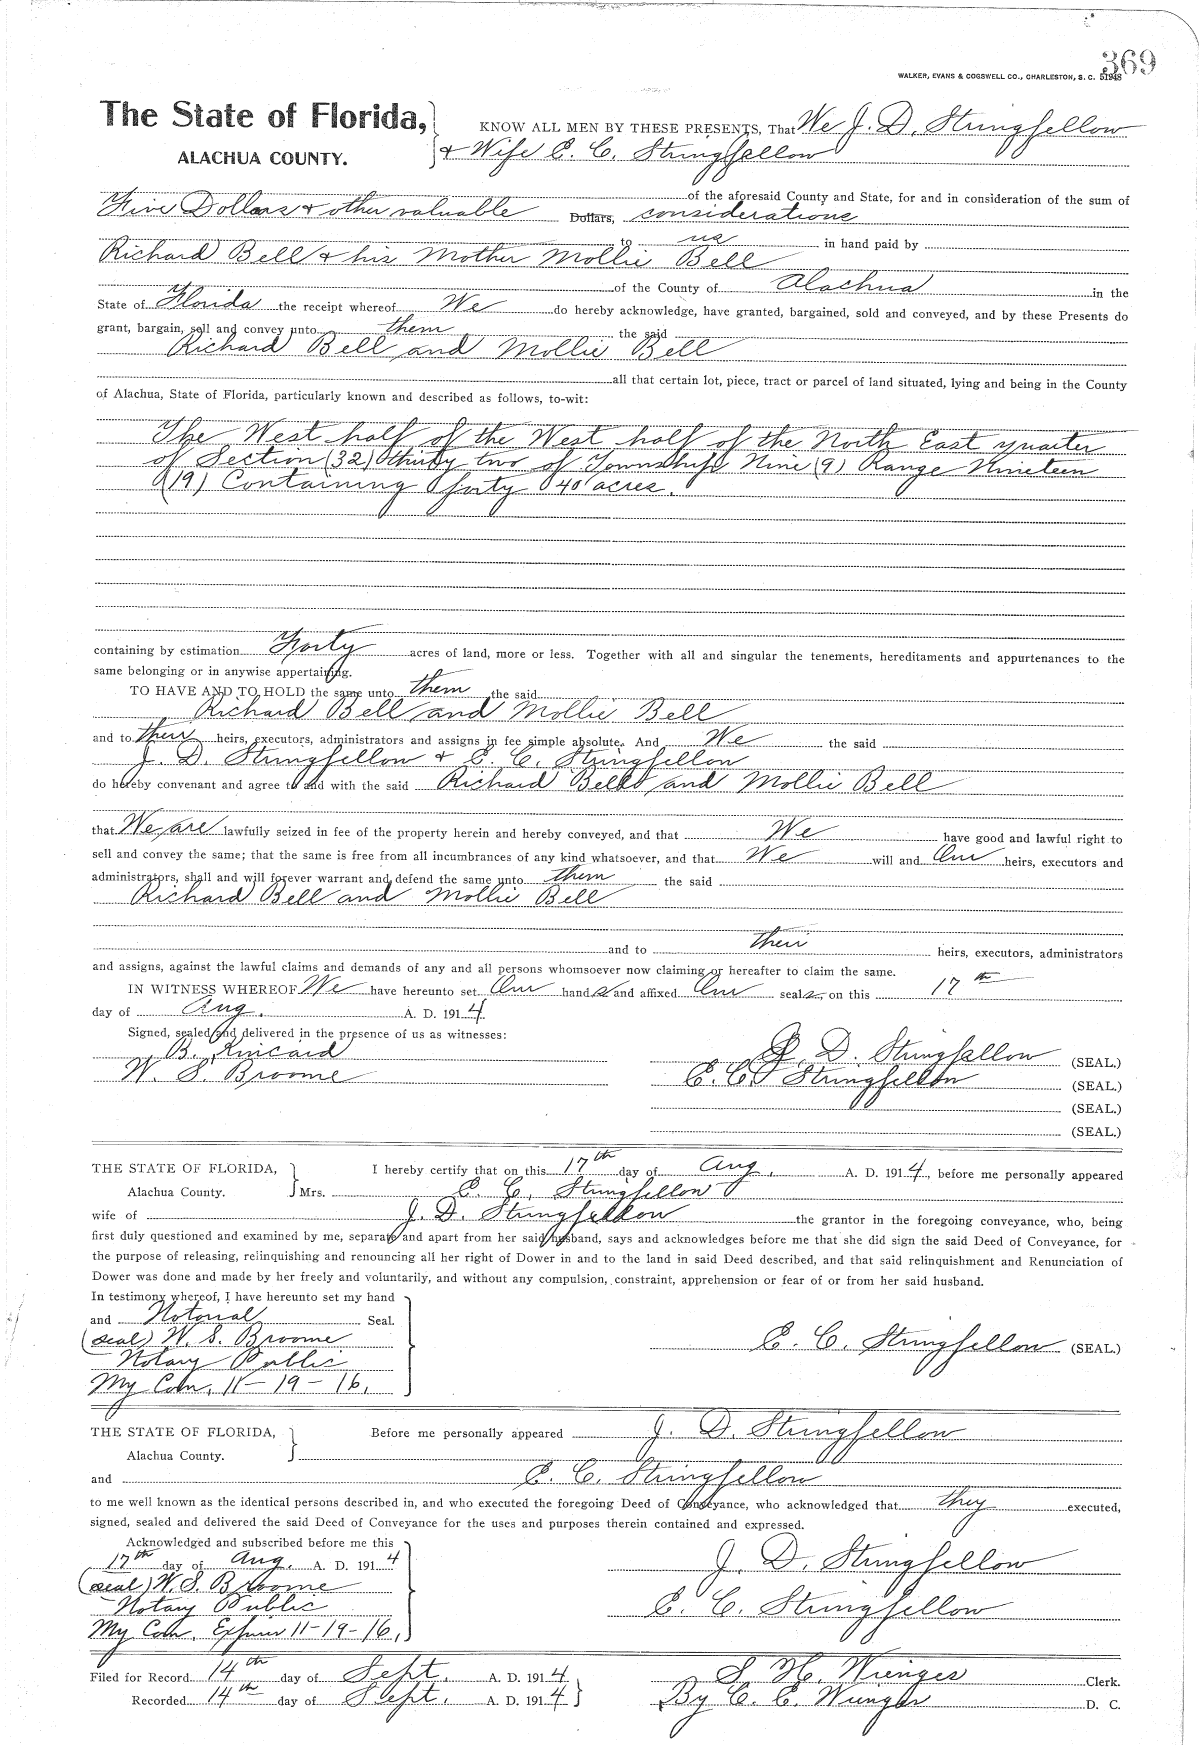 369
WALKER, EVANS & COGSWELL CO., CHARLESTON, S. C.
The State of Florida,
ALACHUA COUNTY.
KNOW ALL MEN BY THESE PRESENTS, That We J. D. Stringfellow
& Wife E. C. Stringfellow
of the aforesaid County and State, for and in consideration of the sum of
Five Dollars & other valuable Dollars, considerations
to us in hand paid by
Richard Bell & his Mother Mollie Bell
of the County of Alachua in the
State of Florida the receipt whereof We do hereby acknowledge, have granted, bargained, sold and conveyed, and by these Presents do
grant, bargain, sell and convey unto them the said
Richard Bell and Mollie Bell
all that certain lot, piece, tract or parcel of land situated, lying and being in the County
of Alachua, State of Florida, particularly known and described as follows, to-wit:
The West half of the West half of the North East quarter
of Section (32) thirty two of Township Nine (9) Range Nineteen
(19) Containing forty 40 acres.
containing by estimation Forty acres of land, more or less. Together with all and singular the tenements, hereditaments and appurtenances to the
same belonging or in anywise appertaining.
TO HAVE AND TO HOLD the same unto them the said
Richard Bell and Mollie Bell
and to their heirs, executors, administrators and assigns in fee simple absolute. And We the said
J. D. Stringfellow & E. C. Stringfellow
do hereby convenant and agree to and with the said Richard Bell and Mollie Bell
that We are lawfully seized in fee of the property herein and hereby conveyed, and that We have good and lawful right to
sell and convey the same; that the same is free from all incumbrances of any kind whatsoever, and that We will and Our heirs, executors and
administrators, shall and will forever warrant and defend the same unto them the said
Richard Bell and Mollie Bell
and to their heirs, executors, administrators
and assigns, against the lawful claims and demands of any and all persons whomsoever now claiming or hereafter to claim the same.
IN WITNESS WHEREOF We have hereunto set Our hands and affixed Our seals, on this 17th
day of Aug. A. D. 1914
Signed, sealed and delivered in the presence of us as witnesses:
B. Kincaid
W. S. Broome
J. D. Stringfellow (SEAL.)
E. C. Stringfellow (SEAL.)
(SEAL.)
(SEAL.)
THE STATE OF FLORIDA,
Alachua County.
I hereby certify that on this 17th day of Aug. A. D. 1914, before me personally appeared
Mrs. E. C. Stringfellow
wife of J. D. Stringfellow the grantor in the foregoing conveyance, who, being
first duly questioned and examined by me, separate and apart from her said husband, says and acknowledges before me that she did sign the said Deed of Conveyance, for
the purpose of releasing, relinquishing and renouncing all her right of Dower in and to the land in said Deed described, and that said relinquishment and Renunciation of
Dower was done and made by her freely and voluntarily, and without any compulsion, constraint, apprehension or fear of or from her said husband.
In testimony whereof, I have hereunto set my hand
and Notorial Seal.
(seal) W. S. Broome
Notary Public
My Com. 11-19-16.
E. C. Stringfellow (SEAL.)
THE STATE OF FLORIDA,
Alachua County.
Before me personally appeared J. D. Stringfellow
and E. C. Stringfellow
to me well known as the identical persons described in, and who executed the foregoing Deed of Conveyance, who acknowledged that they executed,
signed, sealed and delivered the said Deed of Conveyance for the uses and purposes therein contained and expressed.
Acknowledged and subscribed before me this
17th day of Aug. A. D. 1914
(seal) W. S. Broome
Notary Public
My Com. Expires 11-19-16.
J. D. Stringfellow
E. C. Stringfellow
Filed for Record 14th day of Sept. A. D. 1914
Recorded 14th day of Sept. A. D. 1914
S. H. Wienges Clerk.
By C. E. Wienges D. C.